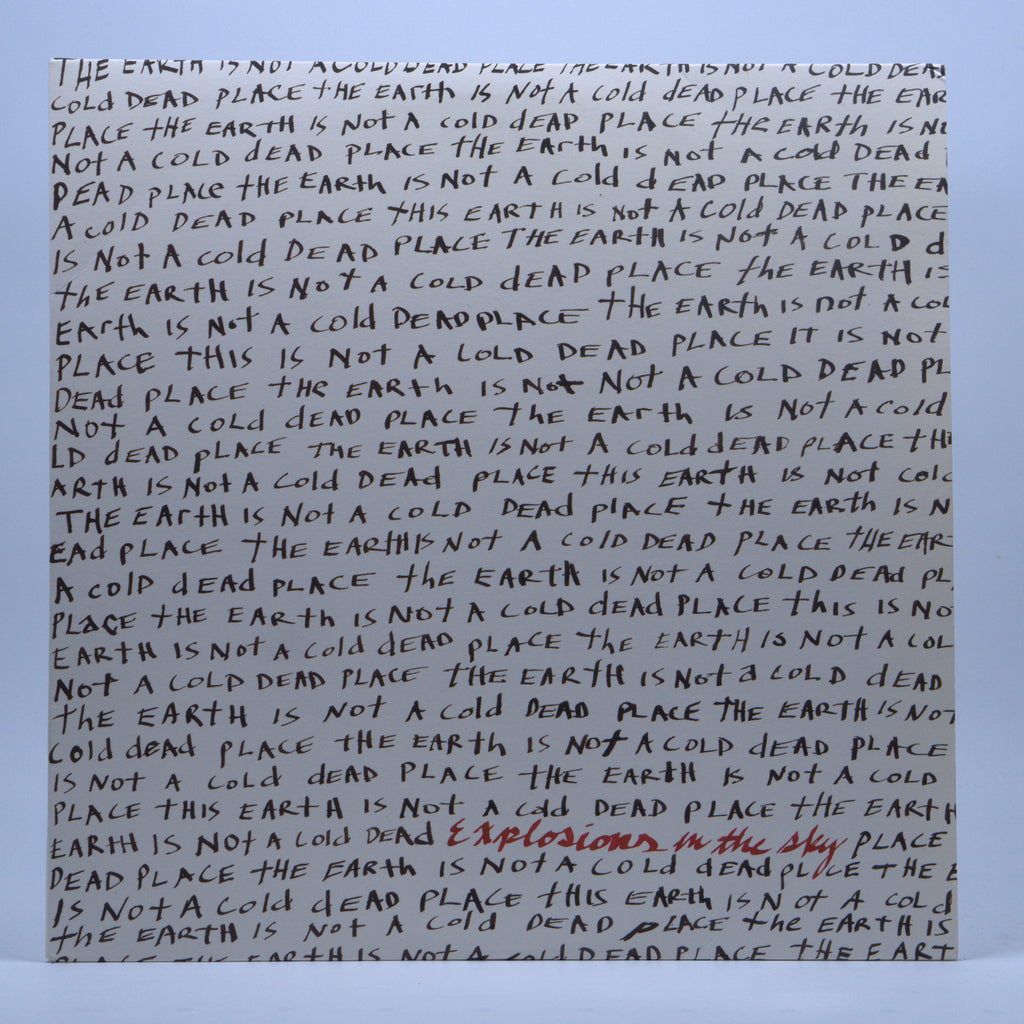 THE EARTH IS NOT A COLD DEAD PLACE THE EARTH IS NOT A COLD DEAD
Cold DEAD PLACE tHE EARth IS Not A Cold dEAD PLACE tHE EAR
PLACE tHE EARtH IS Not A Cold dEAD PLACE tHE EARth IS N
Not A COLD dEAD PLACE tHE EARth IS Not A Cold DEAD
DEAD PLACE tHE EARth IS Not A Cold d EAD PLACE THE EA
A Cold DEAD PLACE tHIS EARTH IS Not A Cold DEAD PLACE
IS Not A Cold DEAD PLACE THE EARtH IS Not A COLD d
thE EARtH IS Not A COLD dEAD PLACE thE EARTH IS
EARth IS Not A Cold DEAD PLACE tHE EARtH IS not A COL
PLACE tHIS IS Not A COLD DEAD PLACE IT IS Not
DEAd PLACE tHE EARth IS Not Not A COLD DEAD PL
Not A COLd dEAD PLACE thE EARth IS Not A Cold
LD dEAD PLACE THE EARTH IS Not A Cold dEAD PLACE tH
ARTH IS Not A Cold DEAd PLACE tHIS EARtH IS Not Cold
THE EArtH IS Not A COLD DEAd PlACE tHE EARth IS N
EAd PLACE tHE EARtH IS Not A Cold DEAD PLACE tHE EAR
A Cold dEAd PLACE thE EARtH IS Not A COLD DEAd PL
PLACE tHE EARth IS Not A COLD dEAd PLACE this IS No
EARtH IS Not A Cold dEAD PLACE thE EARtH IS Not A COL
Not A COLD DEAD PLACE tHE EARtH IS Not a COLD dEAD
thE EARTH IS Not A Cold DEAD PLACE tHE EARtH IS Not
Cold dEAd PLACE tHE EARth IS Not A COLD dEAD PLACE
IS Not A Cold dEAD PLACE tHE EARtH IS Not A COLD
PLACE tHIS EARtH IS Not A Cold DEAD PLACE tHE EARtH
EARtH IS Not A Cold DEAD Explosions in the sky PLACE
DEAD PLACE tHE EARth IS Not A Cold dEAd PLACE tHE E
IS Not A Cold dEAD PLACE tHIS EARth IS Not A Cold
thE EARTH IS Not A Cold DEAD PLACE thE EARtH IS
PLACE THE EARtH IS Not A Cold DEAD PLACE tHE EART